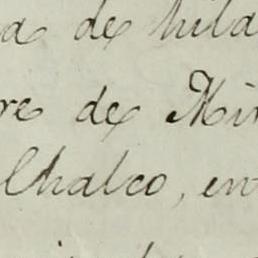 a de hila
re de Mir
Chalco, en